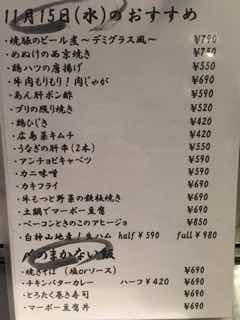 11月15日(水)のおすすめ
・焼豚のビール煮～デミグラス風～ ¥790
・めぬけの西京焼き ¥750
・鶏ハツの唐揚げ ¥550
・牛肉もりもり!肉じゃが ¥690
・あん肝ポン酢 ¥590
・ブリの照り焼き ¥520
・鶏ひじき ¥420
・広島菜キムチ ¥420
・うなぎの肝串(2本) ¥550
・アンチョビキャベツ ¥590
・カニ味噌 ¥690
・カキフライ ¥690
・牛もつと野菜の鉄板焼き ¥690
・土鍋でマーボー豆腐 ¥690
・ベーコンときのこのアヒージョ ¥850
・白神山地産!生ハム half ¥590 full ¥980
のまかない飯
・焼きそば (塩orソース) ¥690
・チキンバターカレー ハーフ¥420 ¥690
・とろたく巻き寿司 ¥690
・マーボー豆腐丼 ¥690